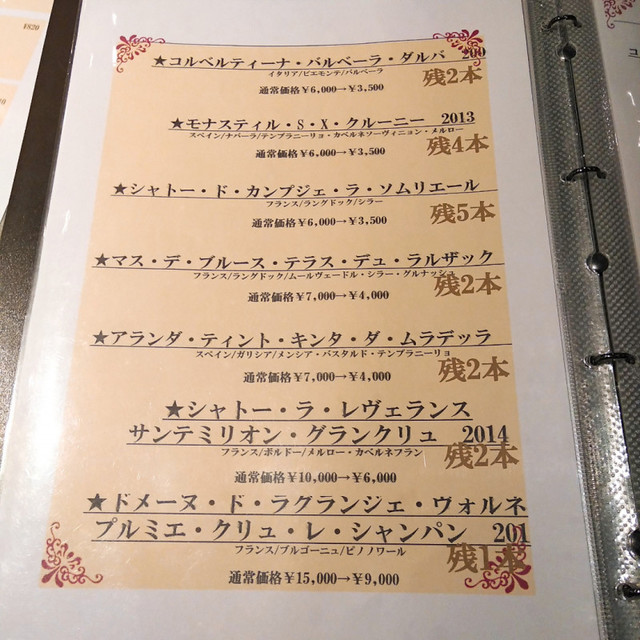 ¥820
★コルベルティーナ・バルベーラ・ダルバ 200
イタリア/ピエモンテ/バルベーラ
残2本
通常価格¥6,000→¥3,500
★モナスティル・S・X・クルーニー 2013
スペイン/ナバーラ/テンプラニーリョ・カベルネソーヴィニョン・メルロー
残4本
通常価格¥6,000→¥3,500
★シャトー・ド・カンプジェ・ラ・ソムリエール
フランス/ラングドック/シラー
残5本
通常価格¥6,000→¥3,500
★マス・デ・ブルース・テラス・デュ・ラルザック
フランス/ラングドック/ムールヴェードル・シラー・グルナッシュ
残2本
通常価格¥7,000→¥4,000
★アランダ・ティント・キンタ・ダ・ムラデッラ
スペイン/ガリシア/メンシア・バスタルド・テンプラニーリョ
残2本
通常価格¥7,000→¥4,000
★シャトー・ラ・レヴェランス
サンテミリオン・グランクリュ 2014
フランス/ボルドー/メルロー・カベルネフラン
残2本
通常価格¥10,000→¥6,000
★ドメーヌ・ド・ラグランジェ・ヴォルネ
プルミエ・クリュ・レ・シャンパン 201
フランス/ブルゴーニュ/ピノノワール
残1本
通常価格¥15,000→¥9,000